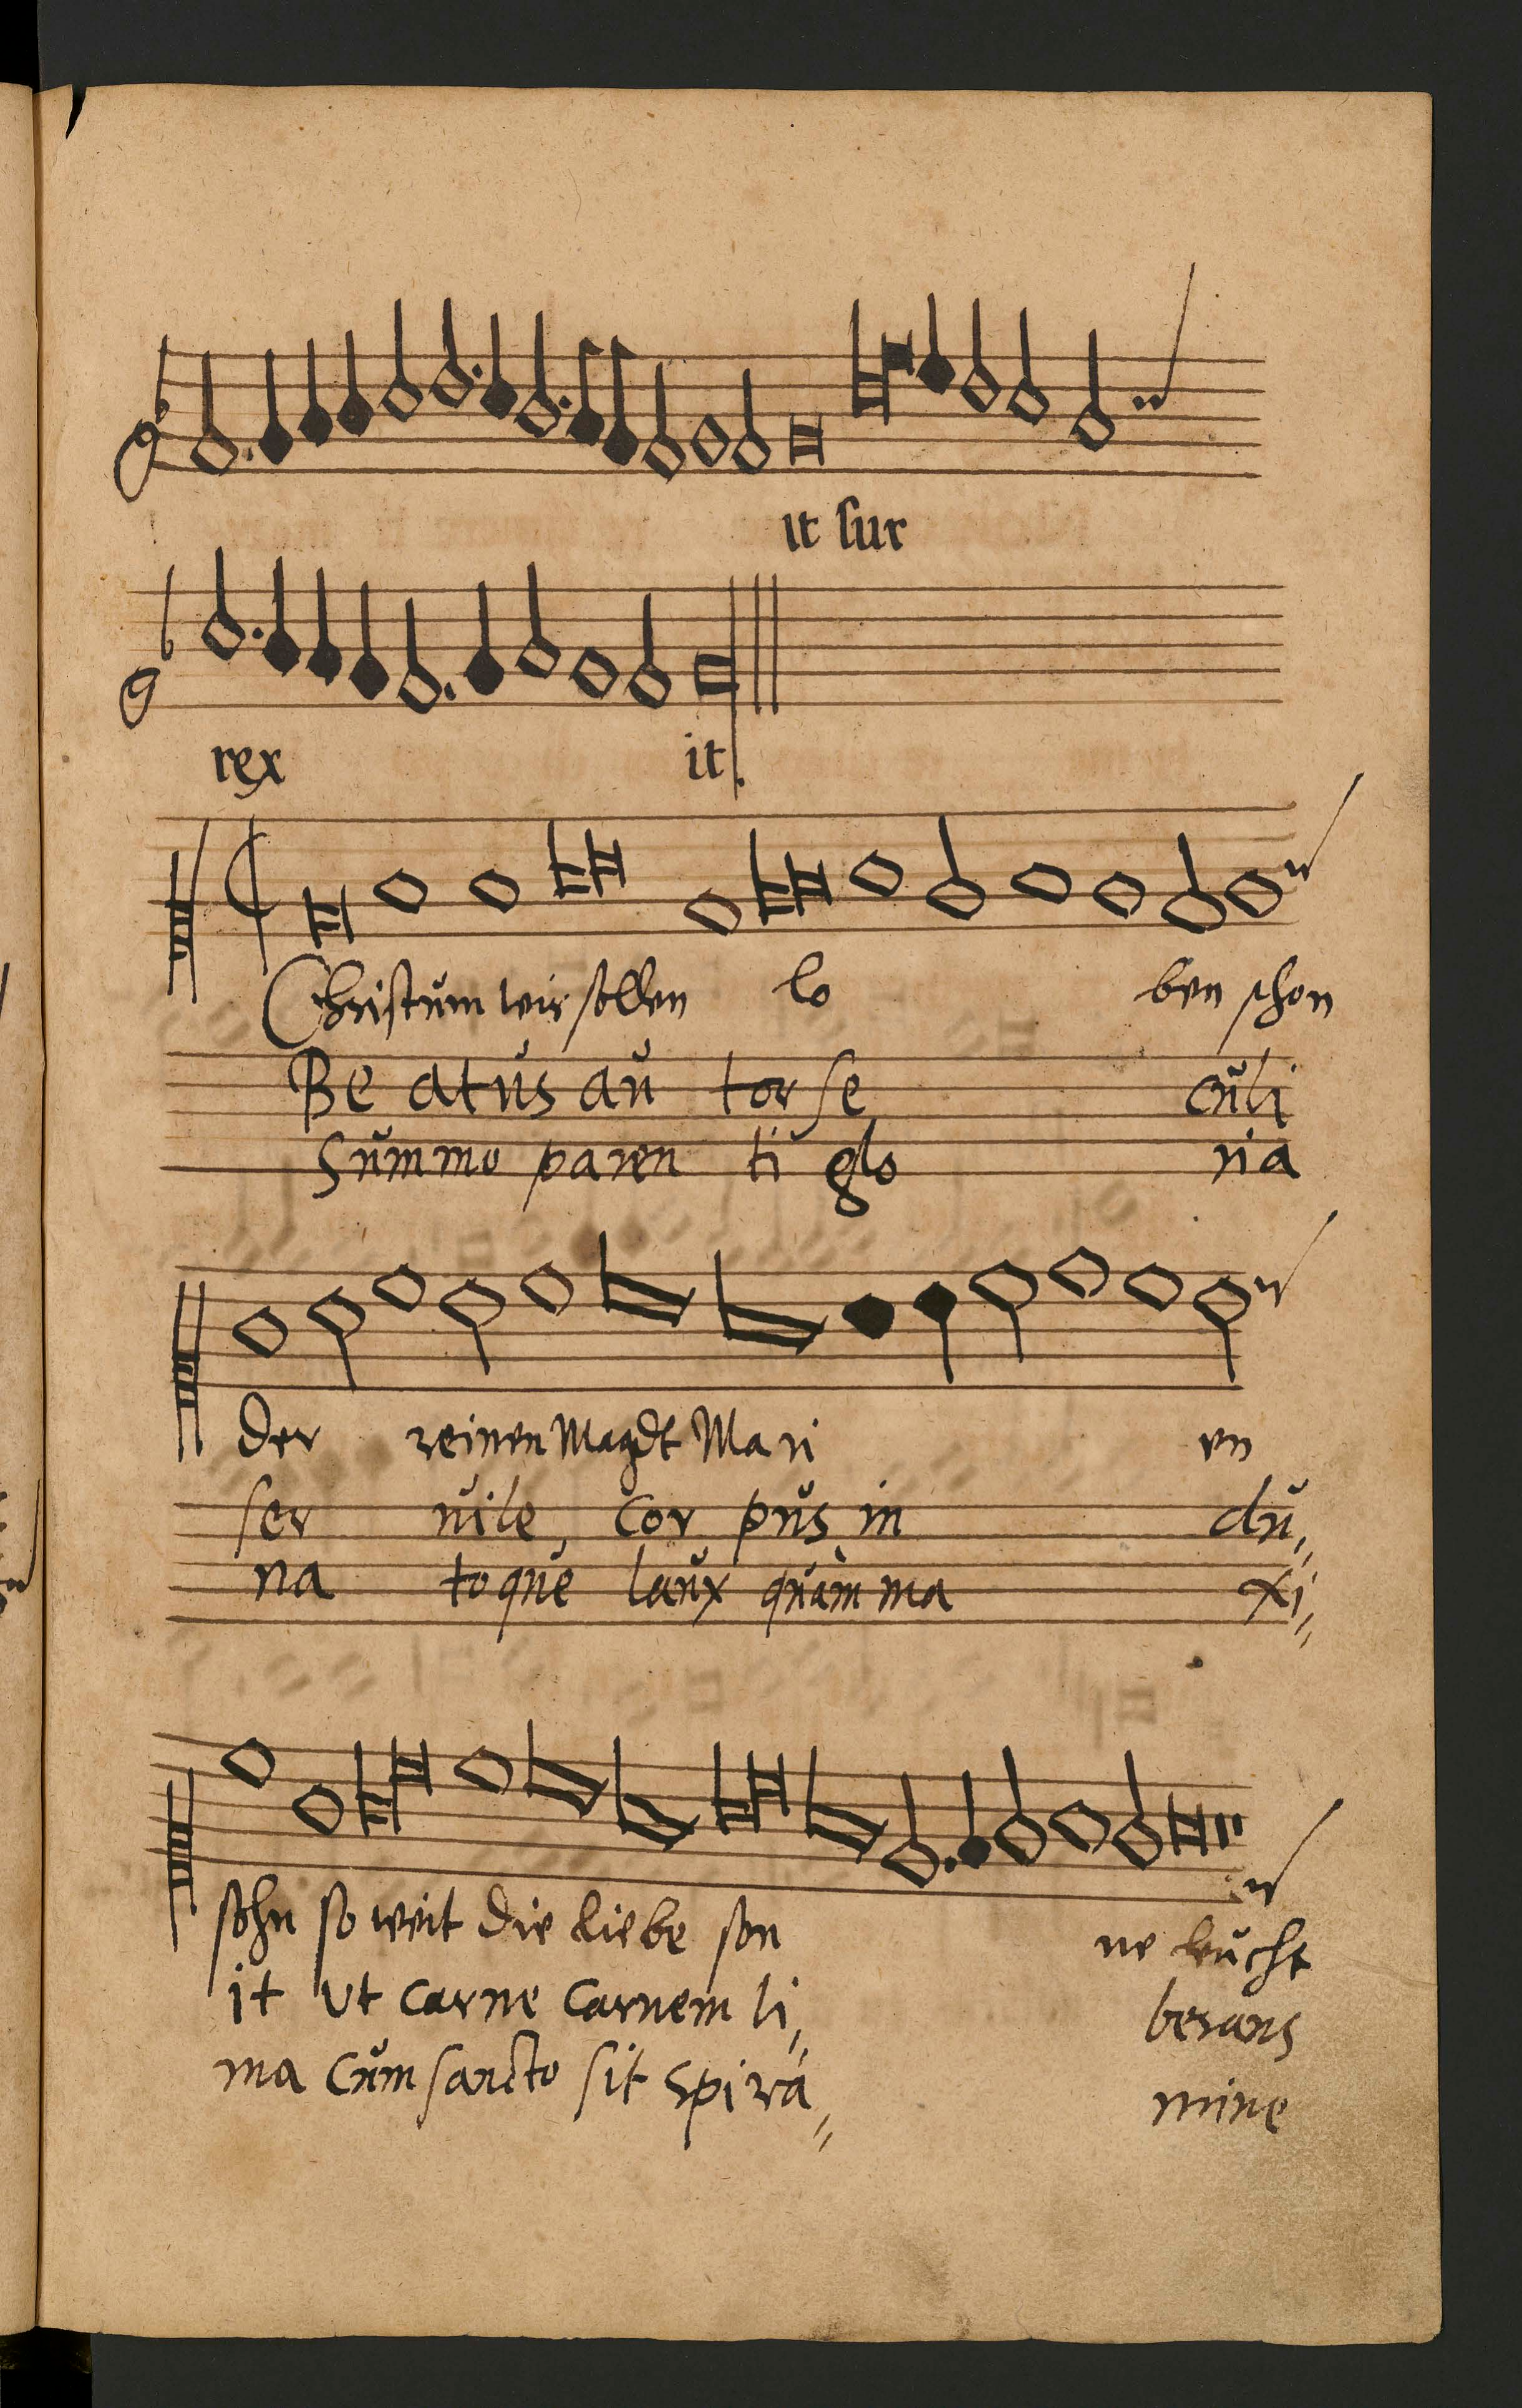 it sur
rex it.
Christum wir sollen lo ben schon
Be atus au tor se culi
Summo paren ti glo ria
der reinen Magdt Ma ri en
ser uile, cor pus in du„
na toque laux quàm ma xi„
sohn so weit die liebe son ne leucht
it vt carne carnem li„ berans
ma cum sancto sit spira„ mine